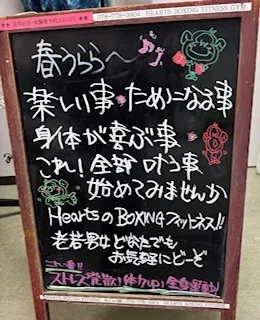 078-778-3904 HEARTS BOXING FITNESS GYM
春うらら〜♪
楽しい事・ためになる事
身体が喜ぶ事・
これ!全部叶う事
始めてみませんか
HeartsのBOXINGフィットネス!!
老若男女どなたでも
お気軽にどーぞ
ストレス発散!体力up!全身運動!